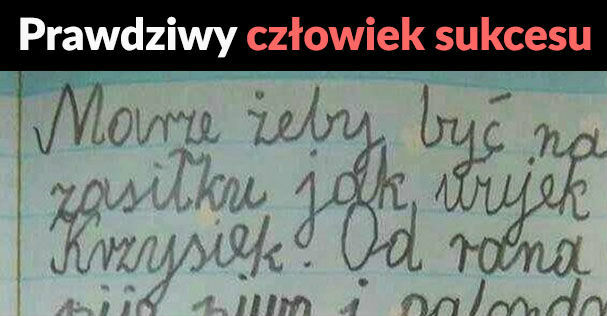 Prawdziwy człowiek sukcesu
Marze żeby być na
zasiłku jak wujek
Krzysiek. Od rana
piwo i